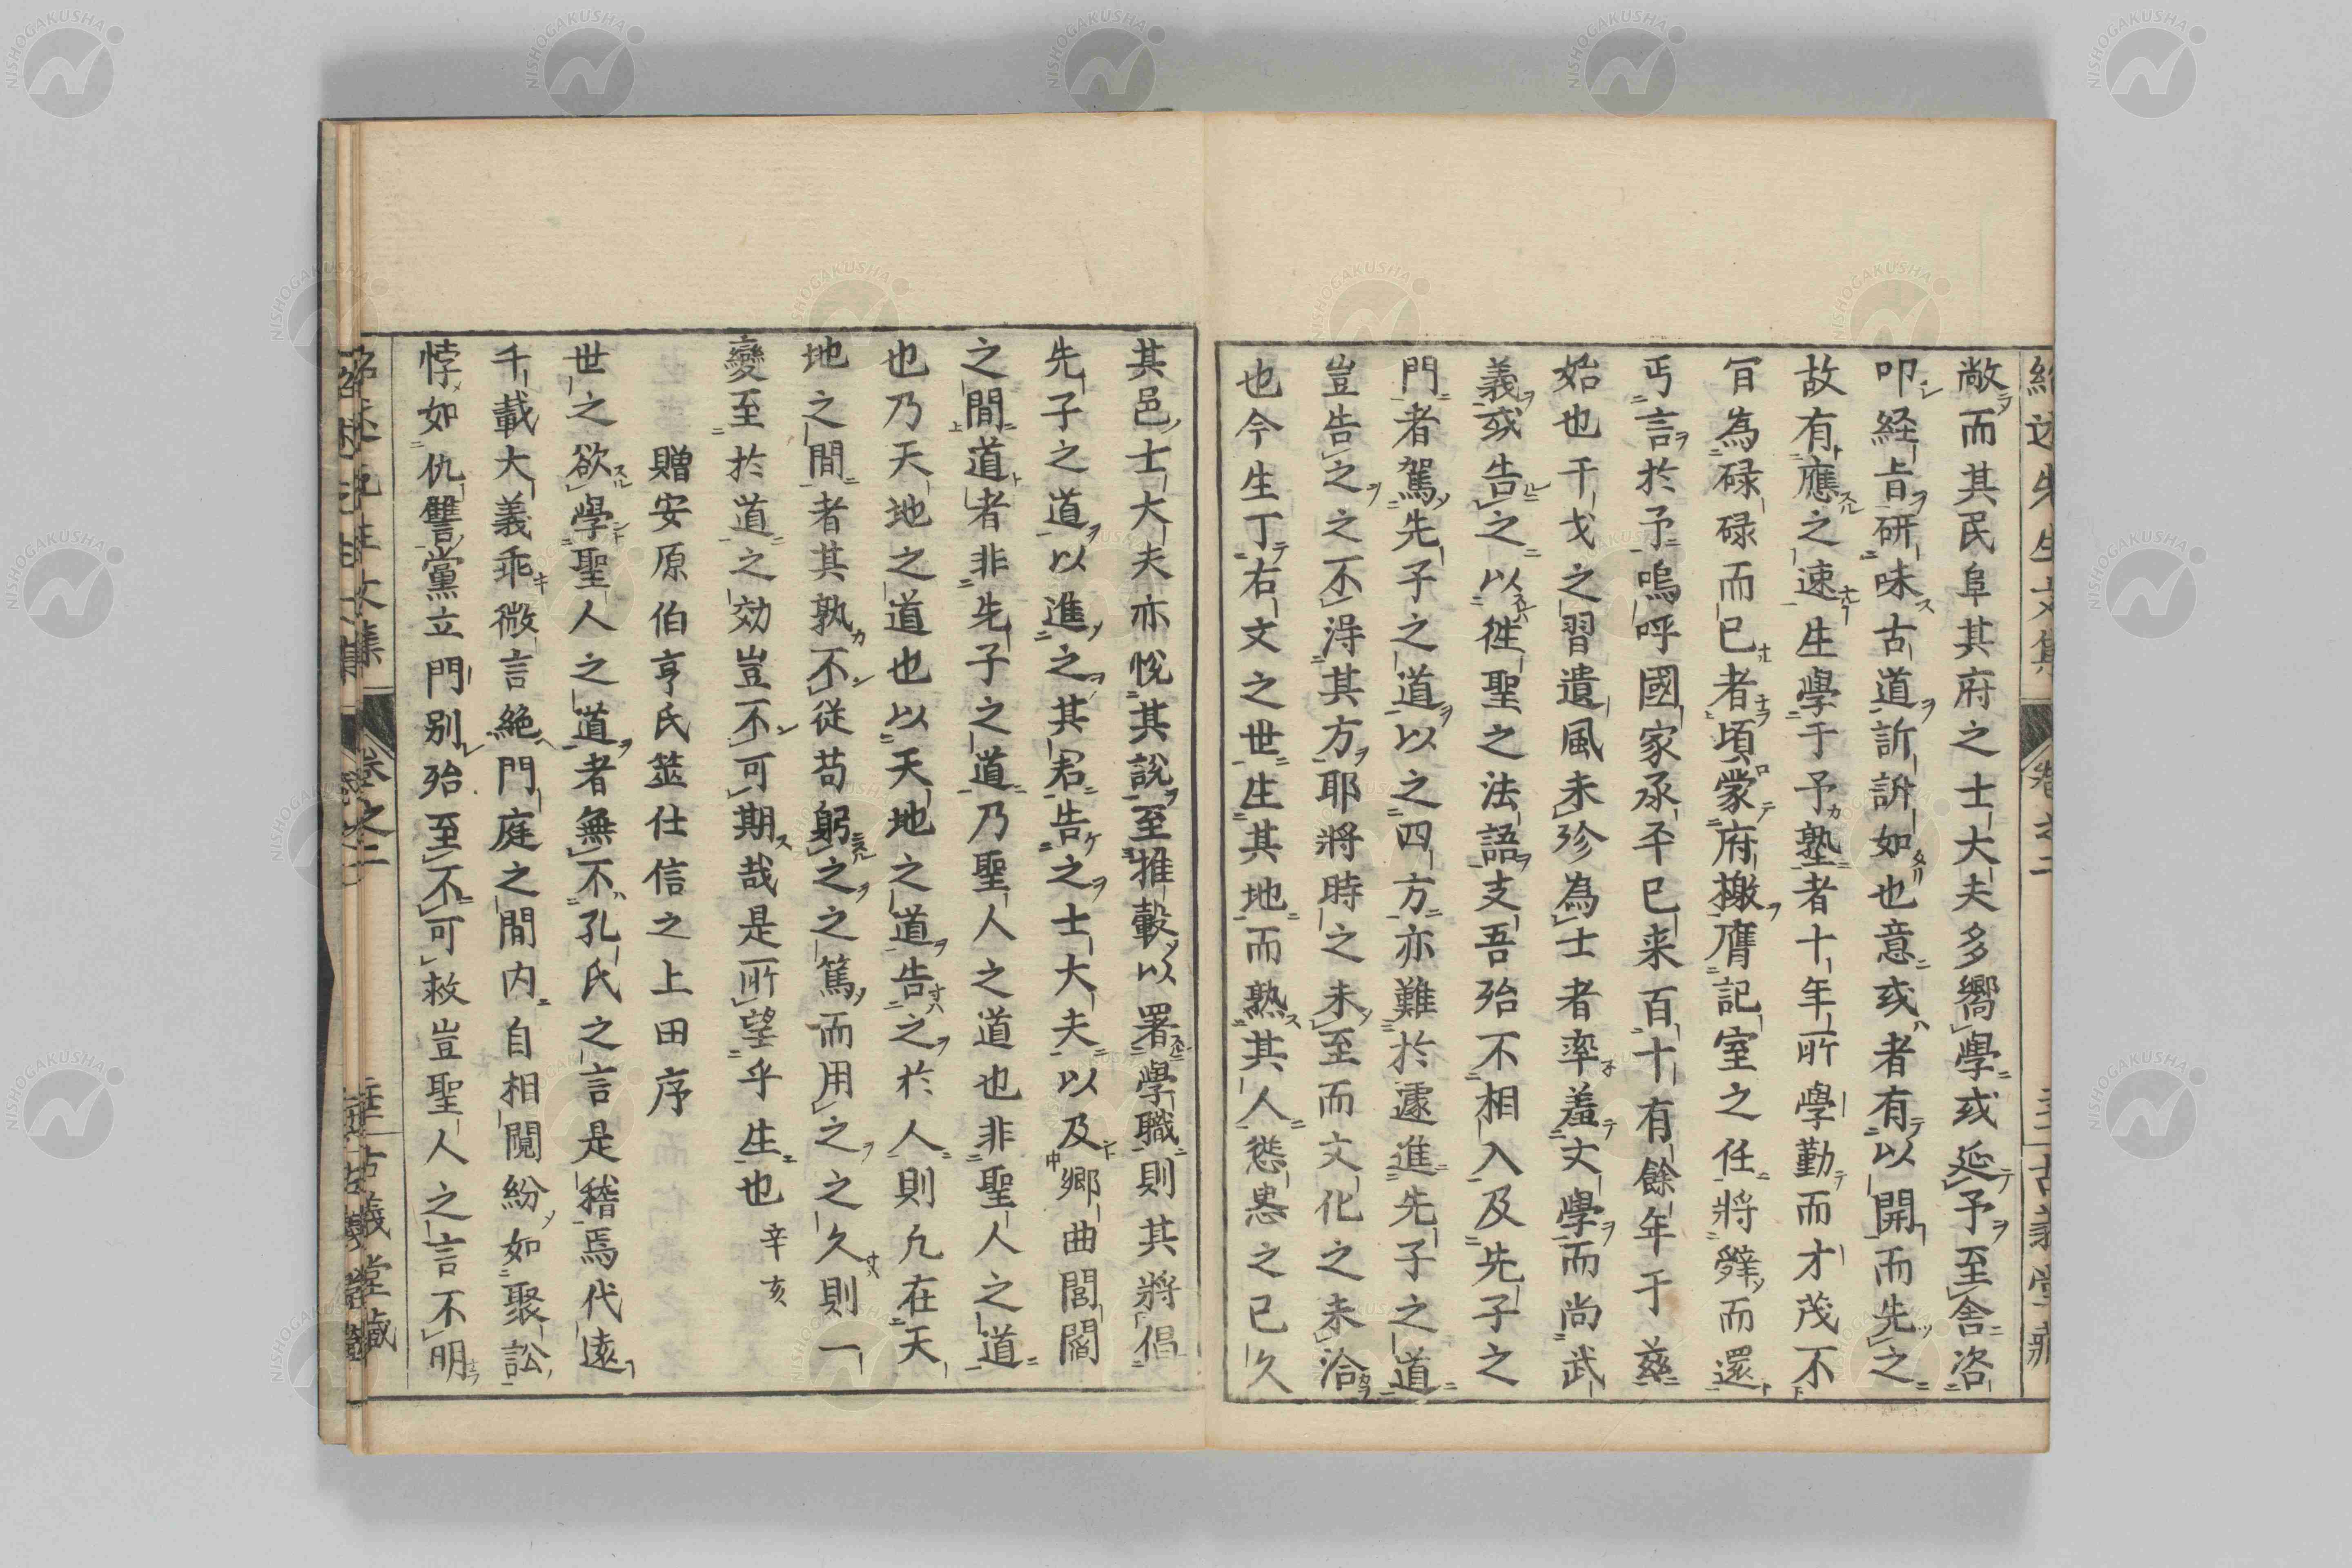 敞而其民阜其府之士大夫多嚮學或延予至舍咨
叩経旨研味古道訢訢如也意或者有以開而先之
故有應之速生學于予塾者十年所學勤而才茂不
冝為碌碌而已者頃蒙府檄膺記室之任將辤而還
丐言於予嗚呼國家承平已来百十有餘年于玆
始也干戈之習遺風未殄為士者率羞文學而尚武
義或告之以徃聖之法語支吾殆不相入及先子之
門者駕先子之道以之四方亦難於遽進先子之道
豈告之之不得其方耶將時之未至而文化之未洽
也今生丁右文之世生其地而熟其人慫恿之已久
其邑士大夫亦悅其説至推轂以署學職則其將倡
先子之道以進之其君告之士大夫以及郷曲閭閻
之間道者非先子之道乃聖人之道也非聖人之道
也乃天地之道也以天地之道告之於人則凡在天
地之間者其孰不従苟躬之之篤而用之之久則一
變至於道之効豈不可期哉是所望乎生也 辛亥
贈安原伯亨氏筮仕信之上田序
世之欲學聖人之道者無不孔氏之言是稽焉代遠
千載大義乖微言絶門庭之間内自相鬩紛如聚訟
悖如仇讐黨立門别殆至不可救豈聖人之言不明
巻之二
古義堂藏